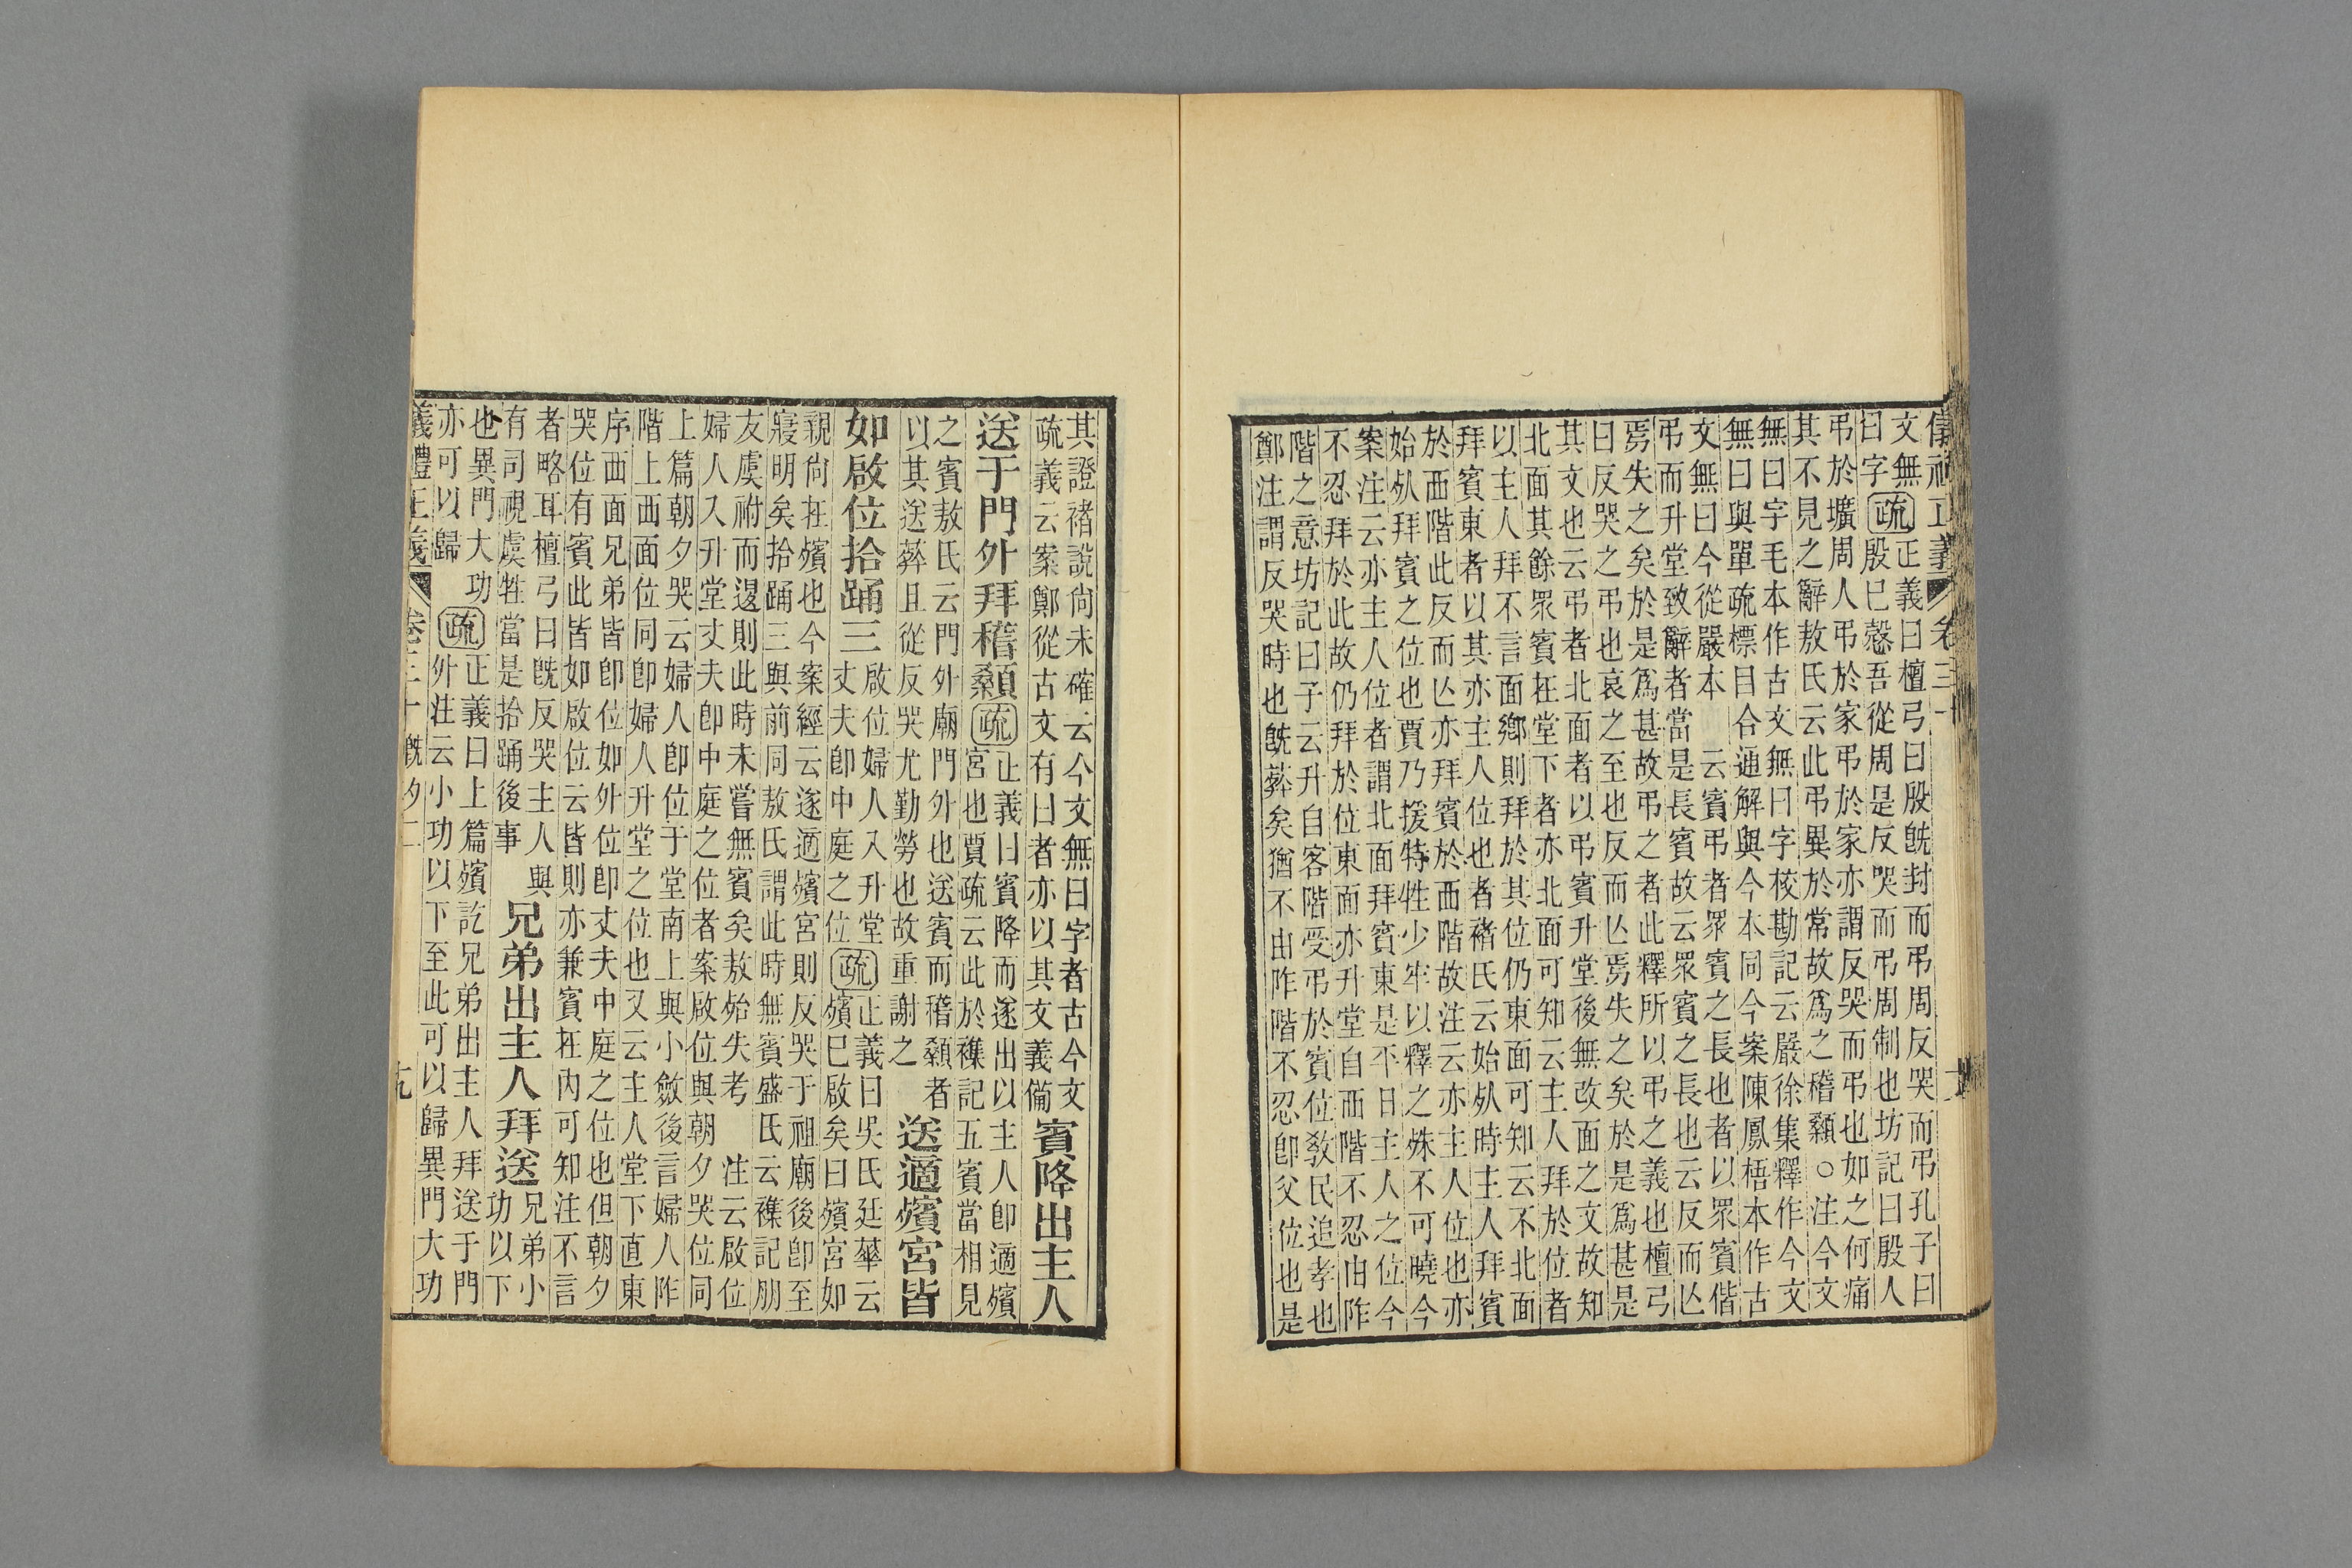 儀禮正義 卷三十
文無
曰字
疏
正義曰檀弓曰殷旣封而弔周反哭而弔孔子曰
殷已慤吾從周是反哭而弔周制也坊記曰殷人
弔於壙周人弔於家弔於家亦謂反哭而弔也如之何痛
其不見之辭敖氏云此弔異於常故爲之稽顙○注今文
無曰字毛本作古文無曰字校勘記云嚴徐集釋作今文
無曰與單疏標目合通解與今本同今案陳鳳梧本作古
文無曰今從嚴本 云賓弔者眾賓之長也者以眾賓偕
弔而升堂致辭者當是長賓故云眾賓之長也云反而亾
焉失之矣於是爲甚故弔之者此釋所以弔之義也檀弓
曰反哭之弔也哀之至也反而亾焉失之矣於是爲甚是
其文也云弔者北面者以弔賓升堂後無改面之文故知
北面其餘眾賓在堂下者亦北面可知云主人拜於位者
以主人拜不言面鄉則拜於其位仍東面可知云不北面
拜賓東者以其亦主人位也者褚氏云始死時主人拜賓
於西階此反而亾亦拜賓於西階故注云亦主人位也亦
始死拜賓之位也賈乃援特牲少牢以釋之殊不可曉今
案注云亦主人位者謂北面拜賓東是平日主人之位今
不忍拜於此故仍拜於位東面亦升堂自西階不忍由阼
階之意坊記曰子云升自客階受弔於賓位敎民追孝也
鄭注謂反哭時也旣葬矣猶不由阼階不忍卽父位也是
其證褚說尙未確云今文無曰字者古今文
疏義云案鄭從古文有曰者亦以其文義僃
賓降出主人
送于門外拜稽顙
疏
正義曰賓降而遂出以主人卽適殯
宮也賈疏云此於襍記五賓當相見
之賓敖氏云門外廟門外也送賓而稽顙者
以其送葬且從反哭尤勤勞也故重謝之
遂適殯宮皆
如啟位拾踊三
啟位婦人入升堂
丈夫卽中庭之位
疏
正義曰吳氏廷華云
殯已啟矣曰殯宮如
親尙在殯也今案經云遂適殯宮則反哭于祖廟後卽至
寢明矣拾踊三與前同敖氏謂此時無賓盛氏云襍記朋
友虞祔而退則此時未嘗無賓矣敖殆失考 注云啟位
婦人入升堂丈夫卽中庭之位者案啟位與朝夕哭位同
上篇朝夕哭云婦人卽位于堂南上與小斂後言婦人阼
階上西面位同卽婦人升堂之位也又云主人堂下直東
序西面兄弟皆卽位如外位卽丈夫中庭之位也但朝夕
哭位有賓此皆如啟位云皆則亦兼賓在內可知注不言
者略耳檀弓曰旣反哭主人與
有司視虞牲當是拾踊後事
兄弟出主人拜送
兄弟小
功以下
也異門大功
亦可以歸
疏
正義曰上篇殯訖兄弟出主人拜送于門
外注云小功以下至此可以歸異門大功
儀禮正義 卷三十 旣夕二 九